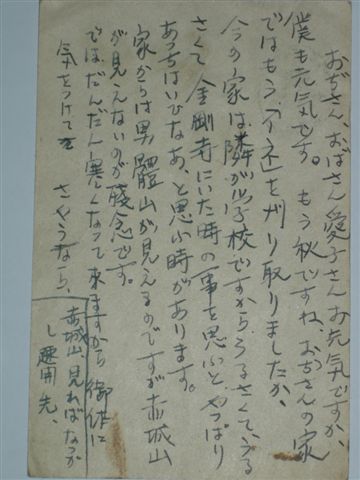 おぢさん、おばさん愛子さんお元気ですか、
僕も元気です。もう秋ですね、おぢさんの家
ではもう「イネ」を刈り取りましたか、
今の家は隣が学校ですからうるさくてうる
さくて金剛寺にいた時の事を思ふとやっぱり
あっちはいひなあ、と思ふ時があります。
家からは男體山が見えるのですが赤城山
が見えないのが残念です。
ではだんだん寒くなって来ますから御体に
気をつけて
さやうなら、
赤城山見ればなつか
し疎開先、